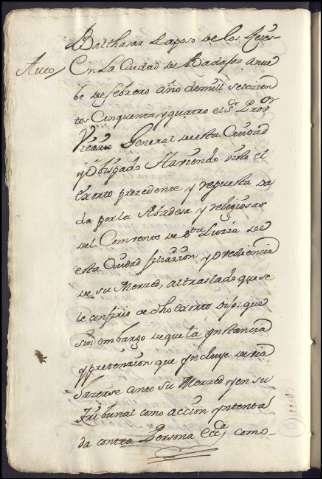 Balthasar Raposo de los Reyes
Auto En la Ciudad de Badajoz a nue
be de febrero año de mill setecien
tos Cinquenta, y quatro el Sr Prov.or
Vicario General de esta Ciudad
y Obispado Haviendo visto el
escrito precedente y respuesta da
da por la Abadesa y religiosas
del Convento de Sta Lucia de
esta Ciudad filiacion, y obediencia
de su Merced, al traslado que se
le confirio de dho escrito Dijo: que
sin embargo de que la instancia
y pretension que incluye devia
darse ante su Merced y en su
Tribunal como accion yntenta
da contra Persona Ecca; como